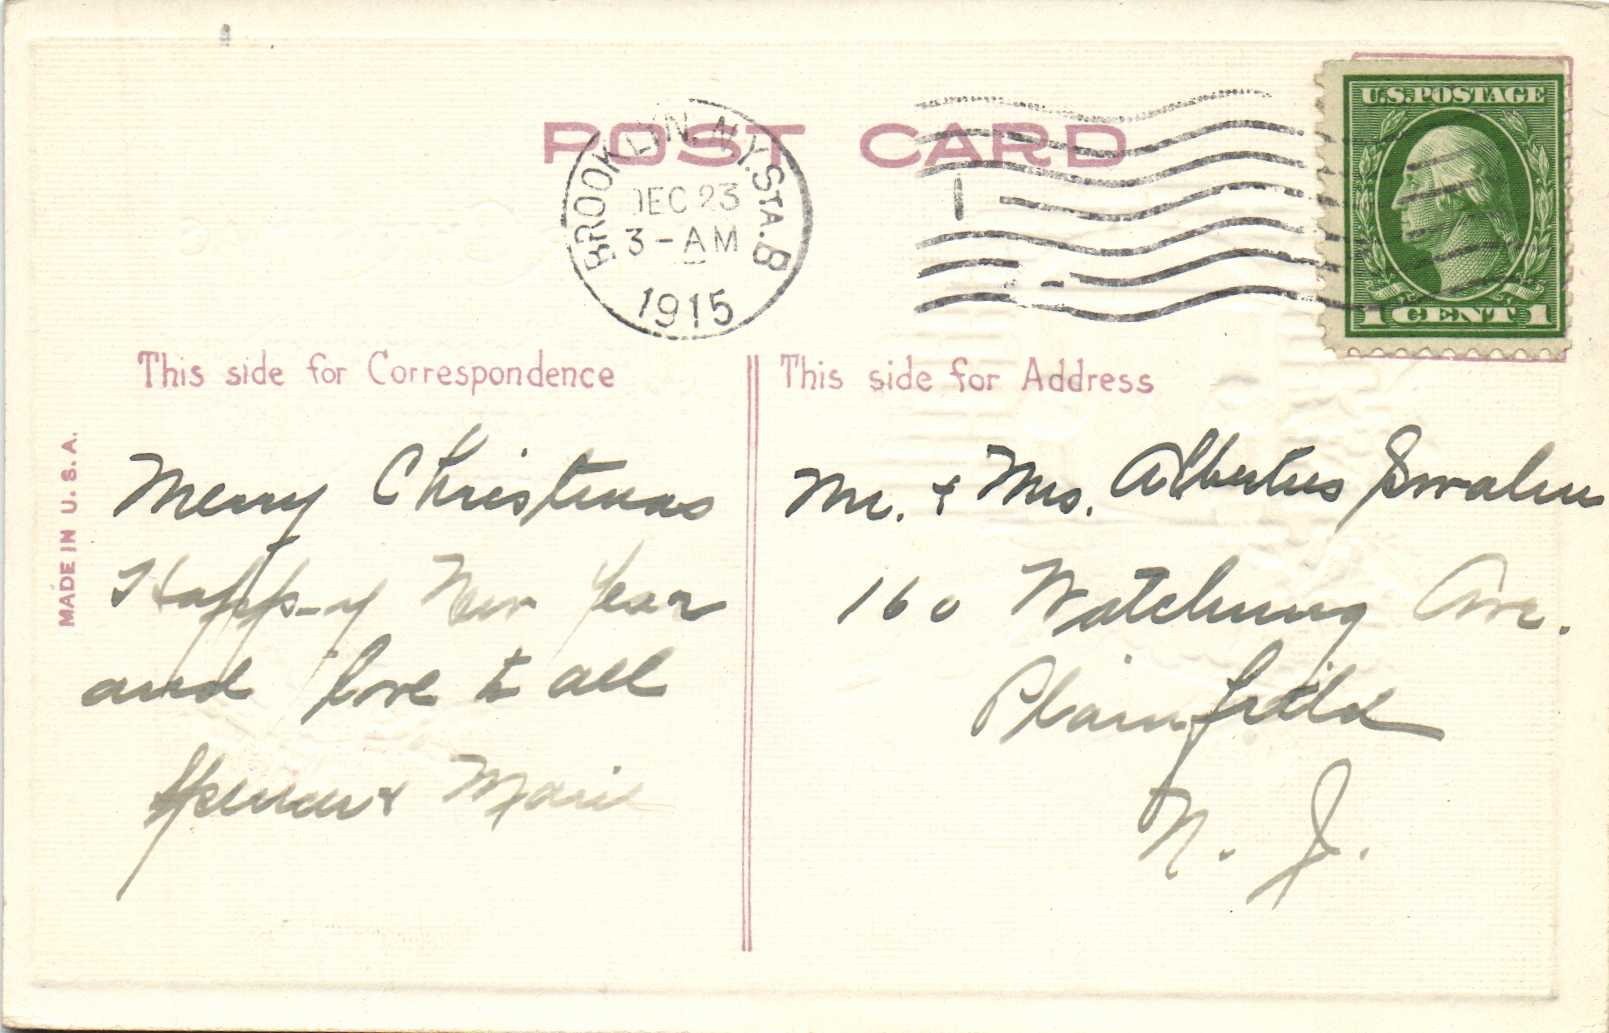 POST CARD
BROOKLYN N.Y. STA. B
DEC 23
3-AM
1915
U.S. POSTAGE
1 CENT 1
This side for Correspondence
This side for Address
MADE IN U.S.A.
Merry Christmas
Happy New Year
and love to all
Spencer & Marie
Mr. & Mrs. Albertus
160 Watchung Ave.
Plainfield
N. J.